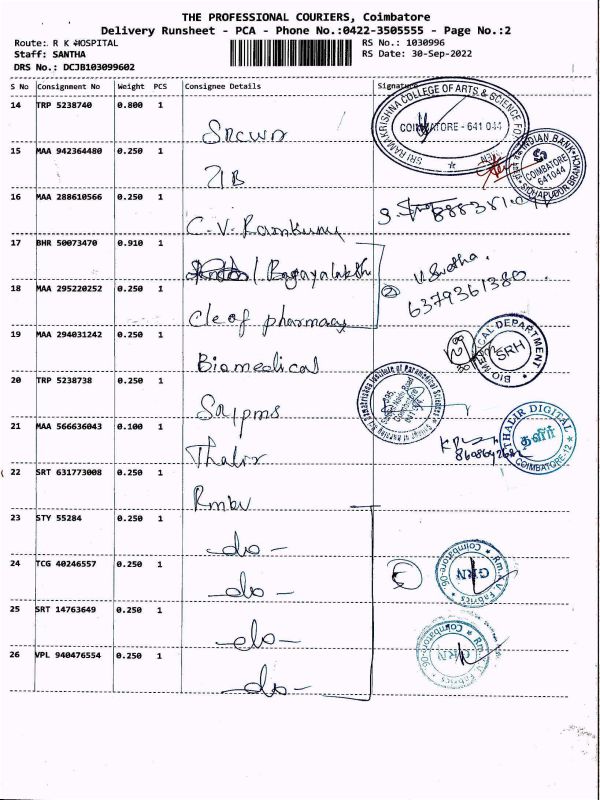 THE PROFESSIONAL COURIERS, Coimbatore
Delivery Runsheet - PCA - Phone No.:0422-3505555 - Page No.:2
Route: R K HOSPITAL
RS No.: 1030996
Staff: SANTHA
RS Date: 30-Sep-2022
DRS No.: DCJB103099602
S No Consignment No Weight PCS Consignee Details Signature
14 TRP 5238740 0.800 1
SRI RAMAKRISHNA COLLEGE OF ARTS & SCIENCE FO
COIMBATORE - 641 044
15 MAA 942364480 0.250 1
INDIAN BANK
COIMBATORE
641044
SIDHAPUDUR BRANCH
16 MAA 288610566 0.250 1
C.V. Ramkumar
17 BHR 50073470 0.910 1
V. Swetha.
6379361380
18 MAA 295220252 0.250 1
Cle of pharmacy
19 MAA 294031242 0.250 1
Biomedical
BIO MEDICAL DEPARTMENT
SRH
20 TRP 5238738 0.250 1
Sripms
21 MAA 566636043 0.100 1
Thalir
THALIR DIGITAL
தளிர்
COIMBATORE-12
22 SRT 631773008 0.250 1
Rmkv
23 STY 55284 0.250 1
-do-
24 TCG 40246557 0.250 1
-do-
Rm.K.V. Fabrics
GRN
Coimbatore-06
25 SRT 14763649 0.250 1
-do-
Rm.K.V. Fabrics
GRN
Coimbatore-06
26 VPL 940476554 0.250 1
-do-